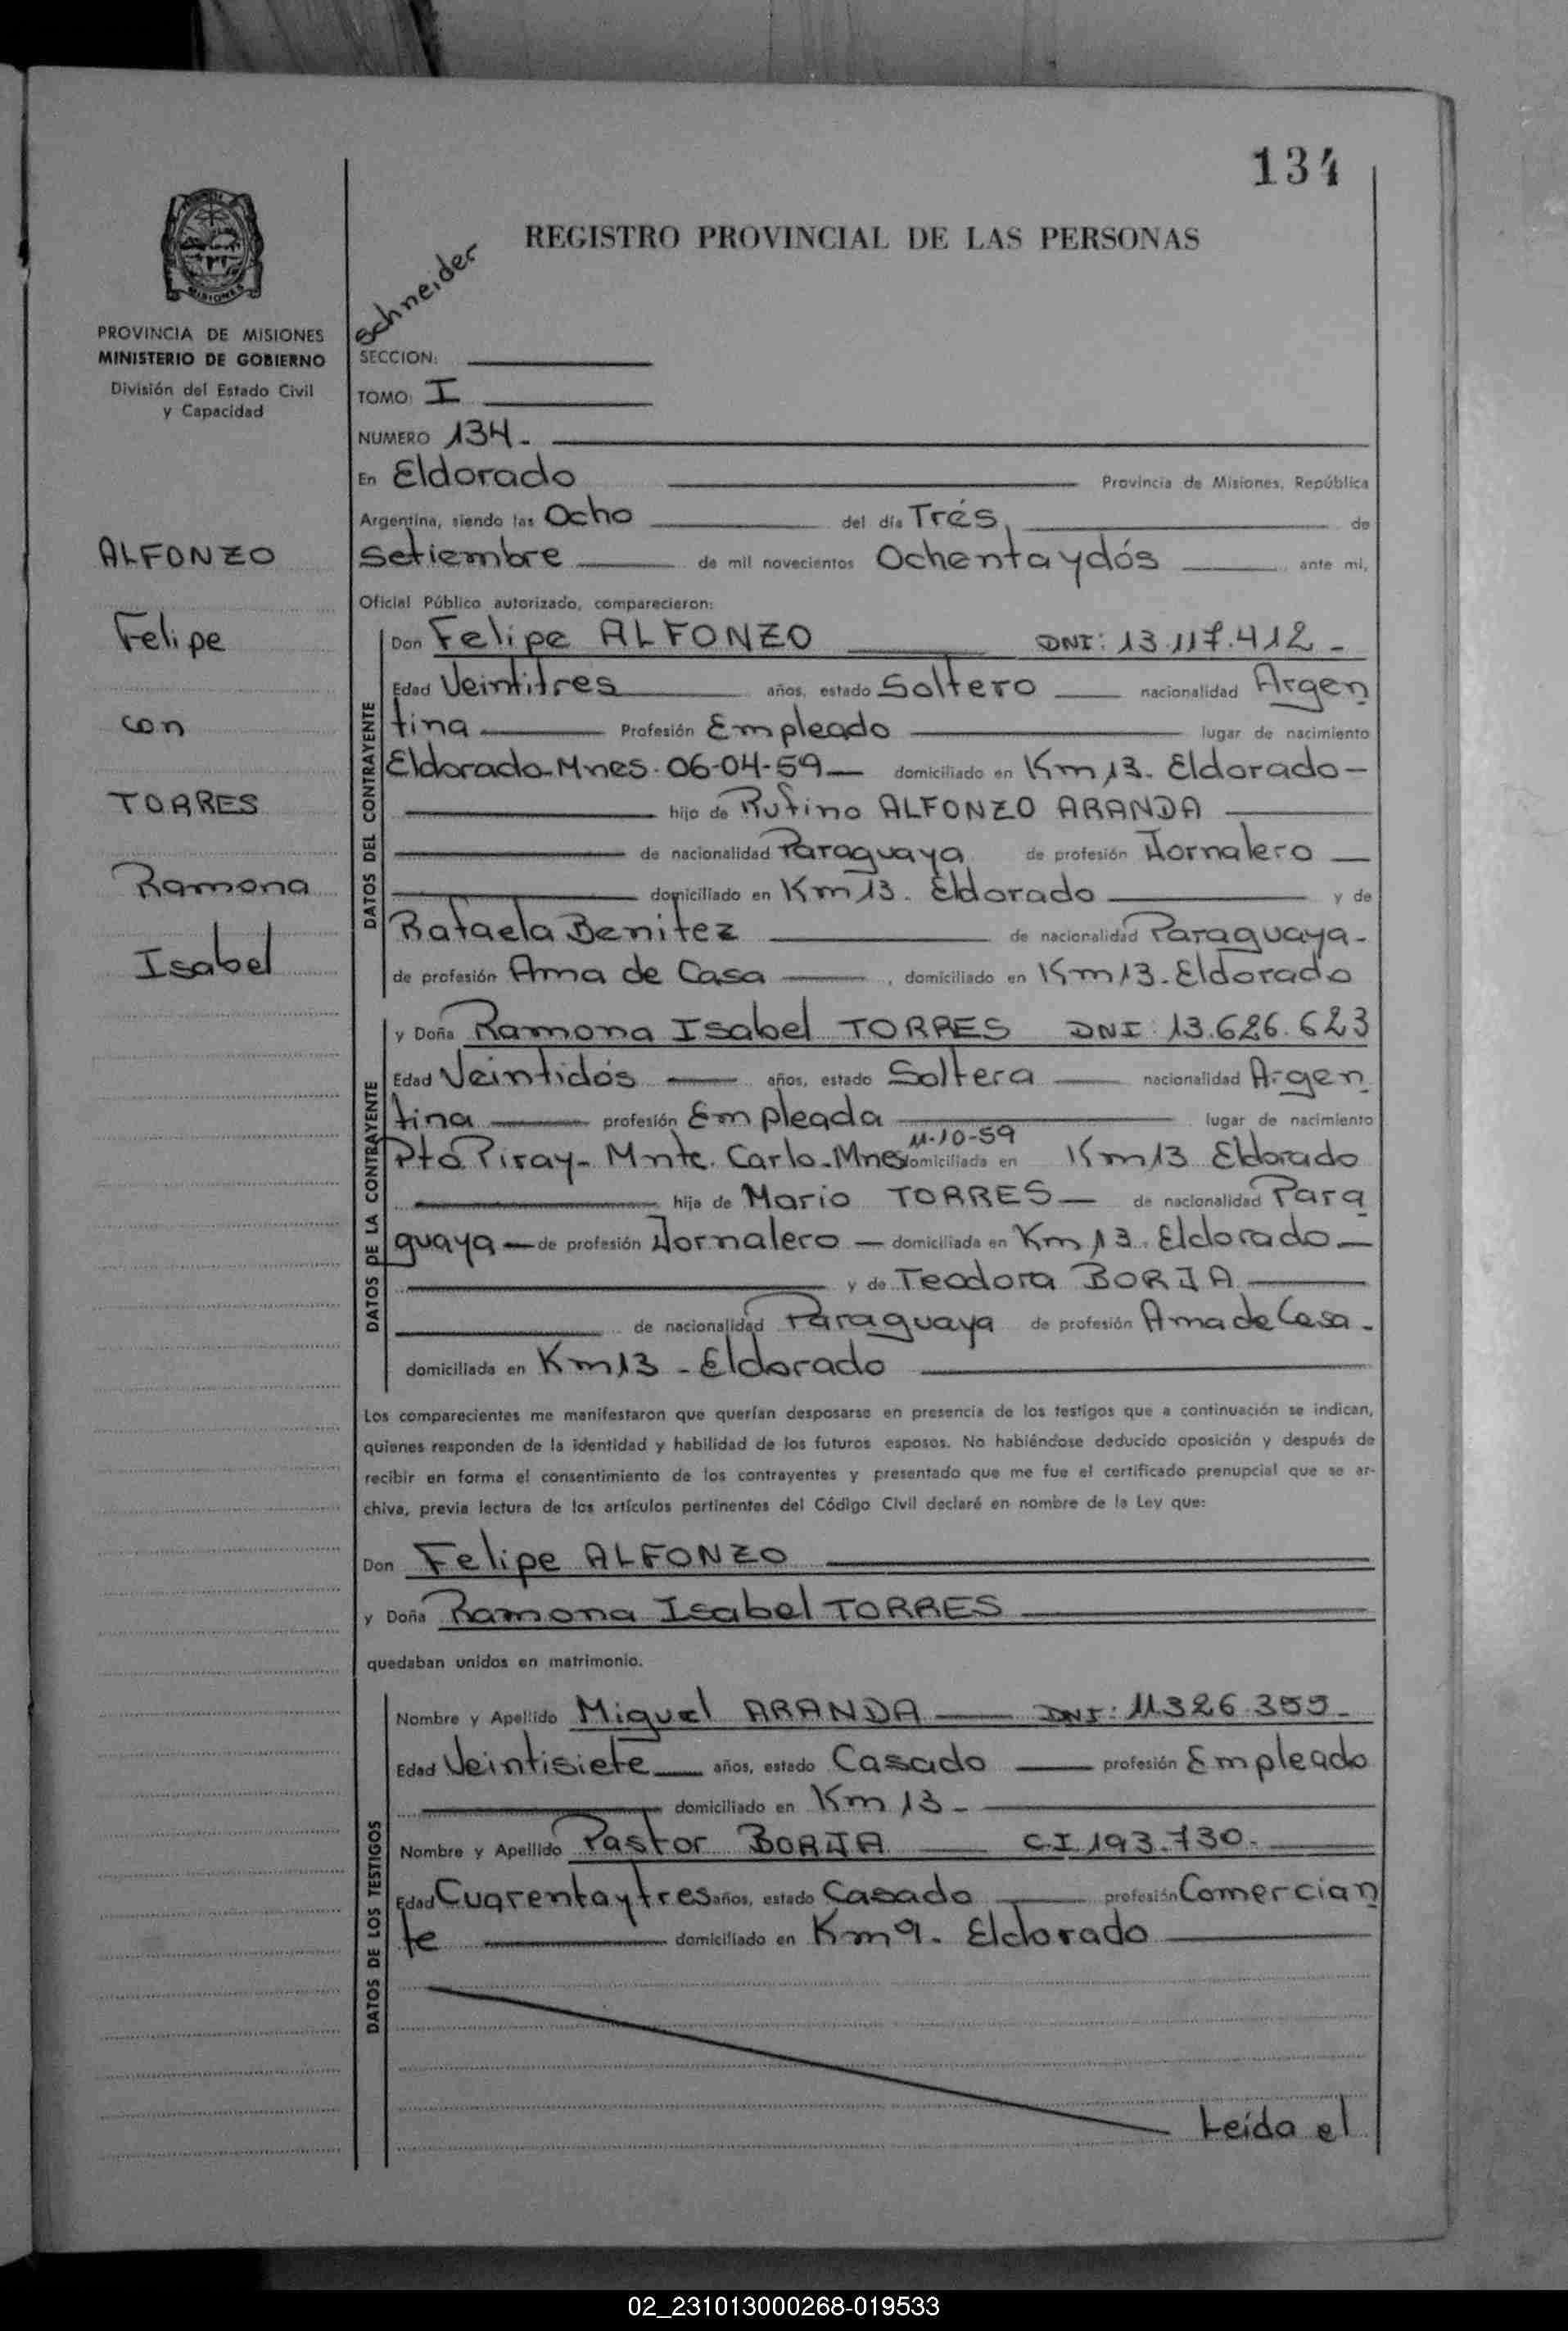 134
REGISTRO PROVINCIAL DE LAS PERSONAS
MISIONES
PROVINCIA DE MISIONES
MINISTERIO DE GOBIERNO
División del Estado Civil
y Capacidad
ALFONZO
Felipe
con
TORRES
Ramona
Isabel
Schneider
SECCION:
TOMO: I
NUMERO 134.
En Eldorado Provincia de Misiones, República
Argentina, siendo las Ocho del día Trés, de
setiembre de mil novecientos Ochenta y dós ante mi,
Oficial Público autorizado, comparecieron:
DATOS DEL CONTRAYENTE
Don Felipe ALFONZO DNI: 13.117.412 -
Edad Veintitres años, estado Soltero nacionalidad Argen
tina Profesión Empleado lugar de nacimiento
Eldorado-Mnes. 06-04-59 domiciliado en Km 13. Eldorado-
hijo de Rufino ALFONZO ARANDA
de nacionalidad Paraguaya de profesión Jornalero
domiciliado en Km 13. Eldorado y de
Rafaela Benitez de nacionalidad Paraguaya-
de profesión Ama de Casa, domiciliado en Km 13. Eldorado
DATOS DE LA CONTRAYENTE
y Doña Ramona Isabel TORRES DNI: 13.626.623
Edad Veintidós años, estado Soltera nacionalidad Argen
tina profesión Empleada lugar de nacimiento
11-10-59
Pto Piray- Mnte. Carlo-Mnes domiciliada en Km 13 Eldorado
hija de Mario TORRES de nacionalidad Para
guaya de profesión Jornalero domiciliada en Km 13. Eldorado
y de Teodora BORJA
de nacionalidad Paraguaya de profesión Ama de Casa-
domiciliada en Km 13 - Eldorado
Los comparecientes me manifestaron que querían desposarse en presencia de los testigos que a continuación se indican,
quienes responden de la identidad y habilidad de los futuros esposos. No habiéndose deducido oposición y después de
recibir en forma el consentimiento de los contrayentes y presentado que me fue el certificado prenupcial que se ar-
chiva, previa lectura de los artículos pertinentes del Código Civil declaré en nombre de la Ley que:
Don Felipe ALFONZO
y Doña Ramona Isabel TORRES
quedaban unidos en matrimonio.
DATOS DE LOS TESTIGOS
Nombre y Apellido Miguel ARANDA DNI: 11326.355-
Edad Veintisiete años, estado Casado profesión Empleado
domiciliado en Km 13-
Nombre y Apellido Pastor BORJA C.I. 193.730.
Edad Cuarenta y tres años, estado Casado profesión Comercian
te domiciliado en Km 9. Eldorado
Leída el
02_231013000268-019533